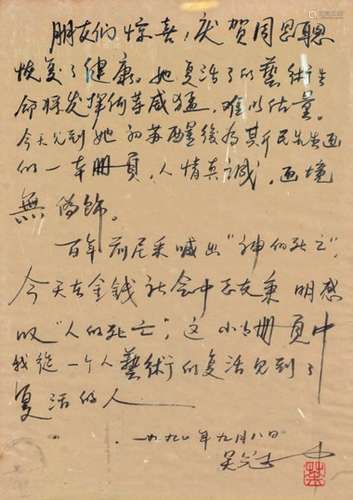 朋友们惊喜，庆贺周思聪
恢复了健康。她复活了的艺術生
命将发挥何等威猛，难以估量。
今天见到她的苏醒後为其民先生画
的一本册頁，人情真诚，画境
無僞飾。
百年前尼采喊出“神的死亡”，
今天在金钱社会中 明感
叹“人的死亡”，这小小册頁中
我從一个人藝術的复活见到了
复活的人
一九九〇年九月八日
吴冠中